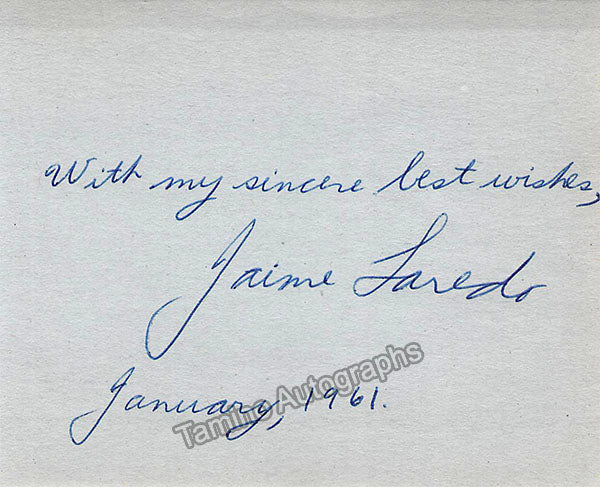 With my sincere best wishes,
Jaime Laredo
January, 1961.
Tamino Autographs